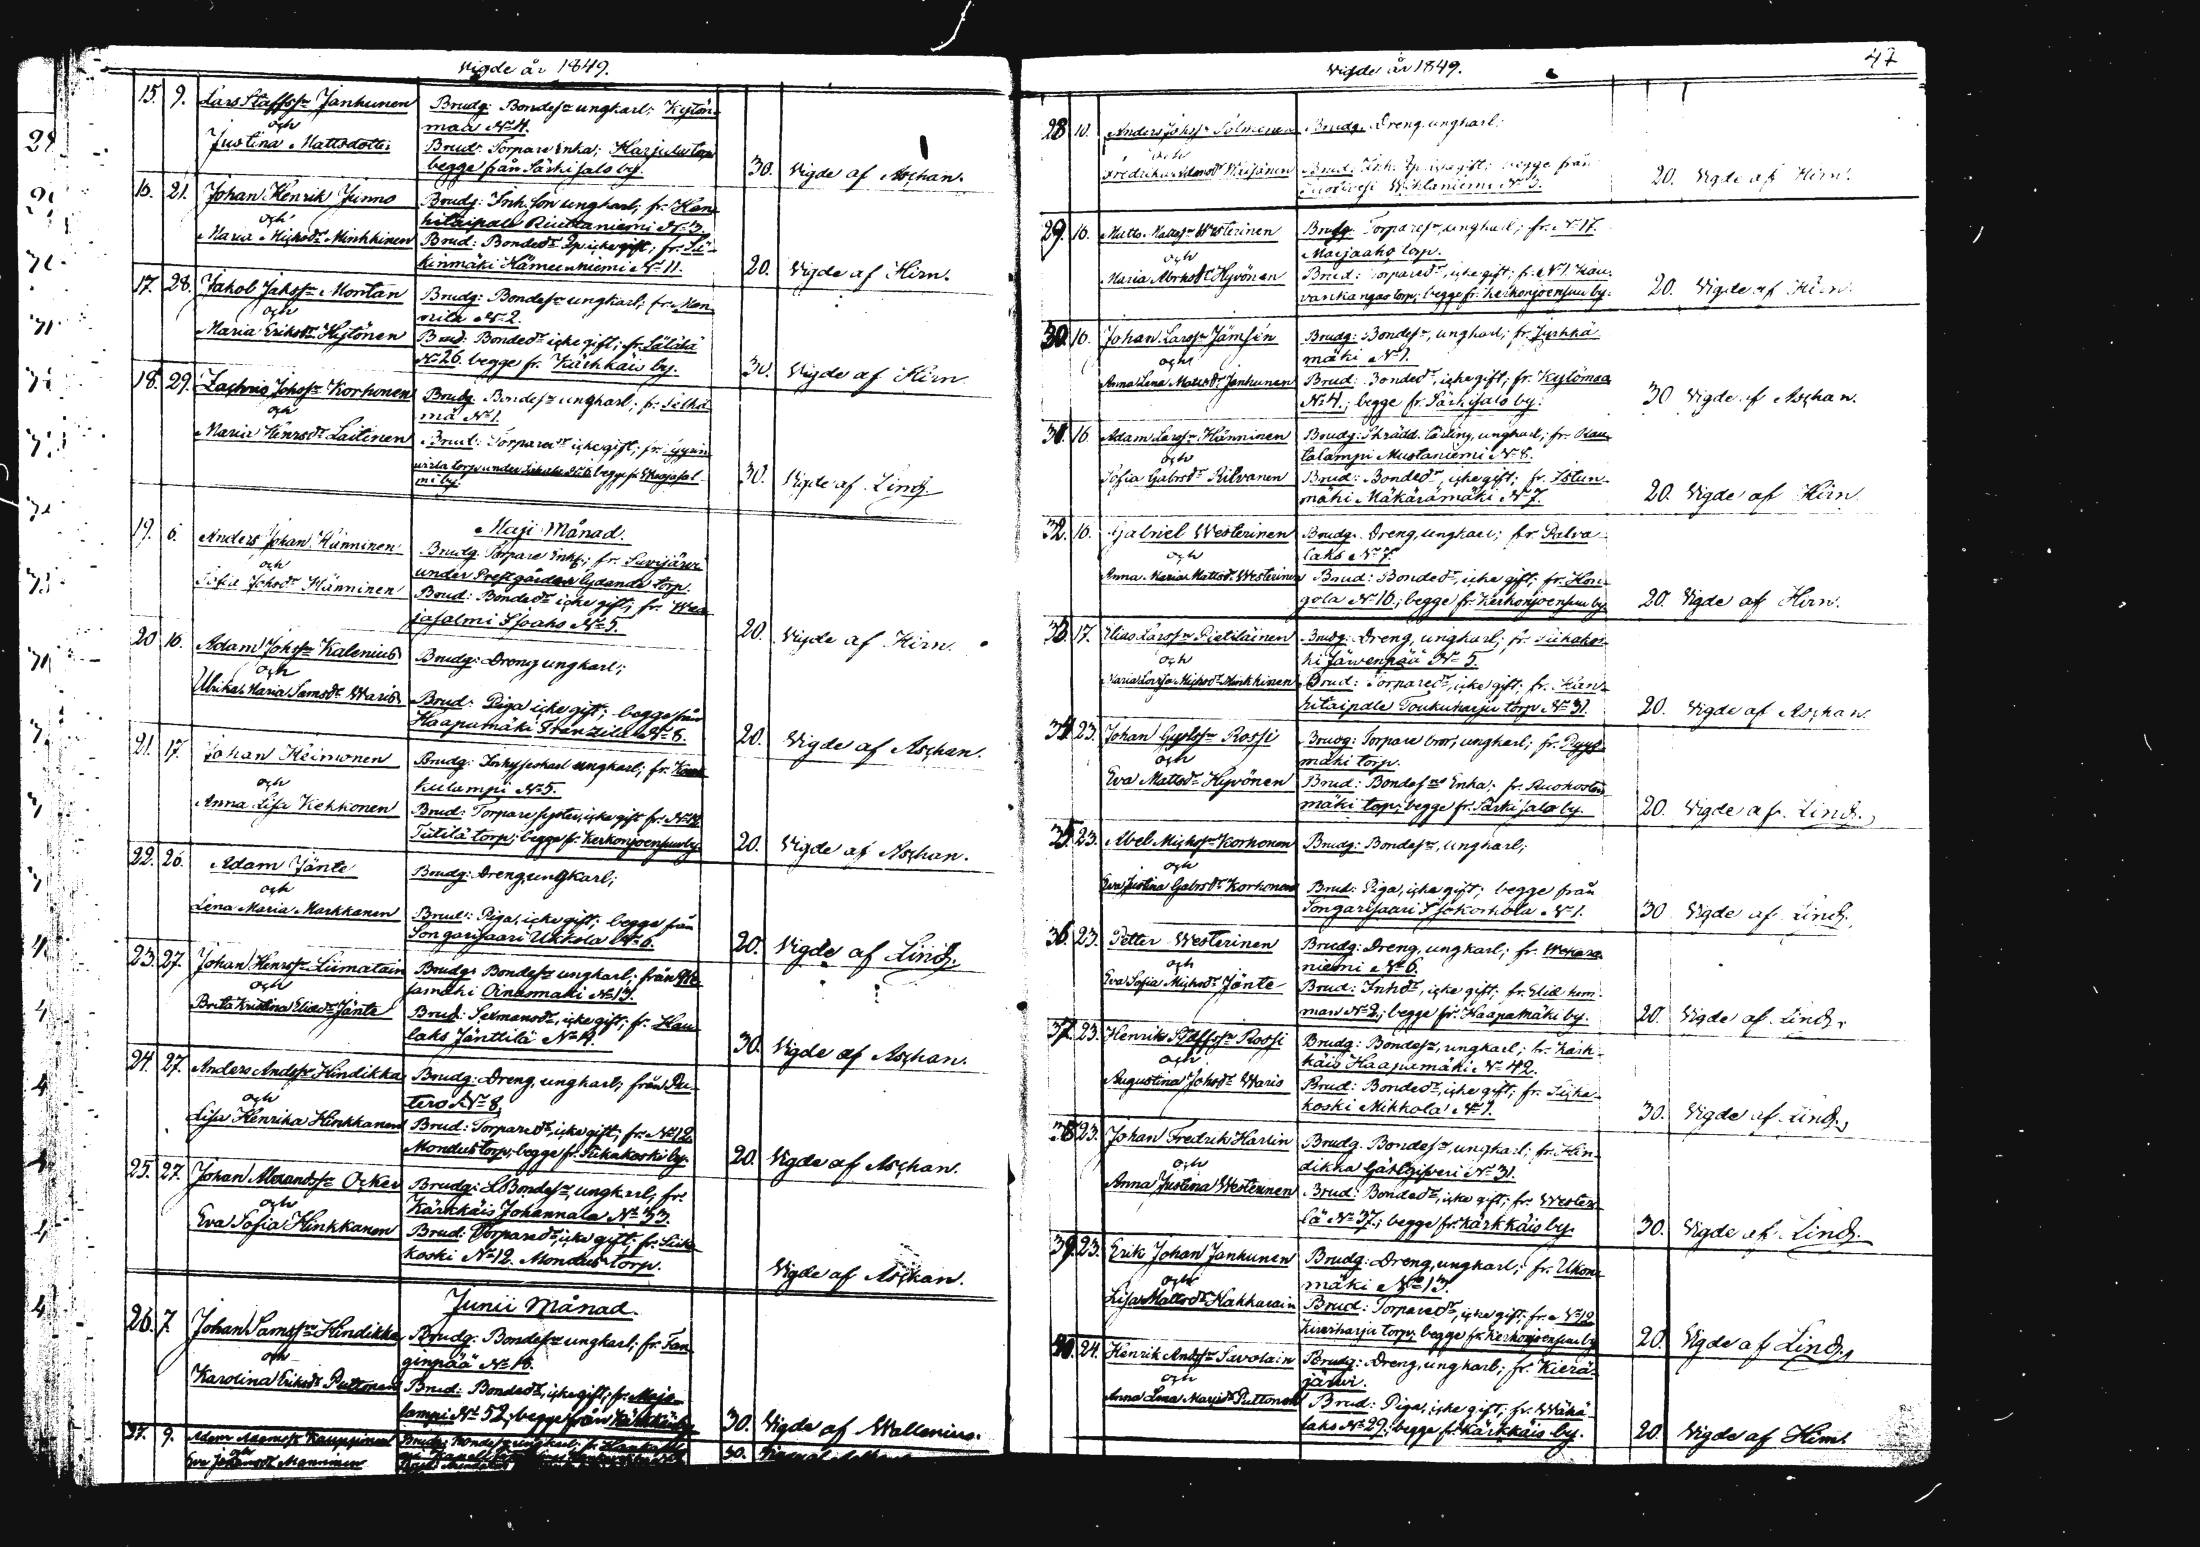 Vigde år 1849.
15. 9. Lars Staffss. Janhunen
och
Justina Mattsdotter
Brudg: Bondes. ungkarl; Kytön-
maa No 4.
Brud: Torpare Enka; Harjula torp
begge från Särkisalo by.
30. Vigde af Asçhan.
16. 21. Johan Henrik Junno
och
Maria Miçhsdr. Minkkinen
Brudg: Inh. Son ungkarl; fr. Han-
kitaipale Riuttaniemi No 3.
Brud: Bondedr. Ogift; fr. Lii-
kinmäki Hämeenniemi No 11.
20. Vigde af Hirn.
17. 28. Jakob Jakss. Montan
och
Maria Eriksdr. Hytönen
Brudg: Bondes. ungkarl; fr. Mon-
nila No 2.
Brud: Bondedr. içke gift; fr.
No 26. begge fr. Kärkkäis by.
30. Vigde af Hirn
18. 29. Zaçhris Johss. Korhonen
och
Maria Henrsdr. Laitinen
Brudg. Bondes. ungkarl; fr. Selkä-
mä No 1.
Brud: Torparedr. içke gift; fr.
torp under begge fr. Wesijasal-
mi by.
30. Vigde af Lindh.
Maji Månad.
19. 6. Anders Johan Hänninen
och
Sofia Johsdr. Hänninen
Brudg. Torpare Enkl; fr. Savijärvi
under Prestgården lydande torp.
Brud: Bondedr. içke gift; fr. Wes-
jasalmi Isoaho No 5.
20. Vigde af Hirn.
20. 16. Adam Johss. Kalenius
och
Ulrika Maria Samsdr. Waris
Brudg: Dreng ungkarl;
Brud: Piga içke gift; begge från
Haapamäki Franzila No 8.
20. Vigde af Asçhan.
21. 17. Johan Heimonen
och
Anna Lisa Kekkonen
Brudg: Inhyseskarl ungkarl; fr.
kulampi No 5.
Brud: Torpare syster, içke gift fr.
Tiitilä torp; begge fr. Kerkonjoensuu by
20. Vigde af Asçhan.
22. 26. Adam Jänte
och
Lena Maria Markkanen
Brudg: Dreng, ungkarl;
Brud: Piga, içke gift; begge från
Songarisaari Ukkola No 6.
20. Vigde af Lindh.
23. 27. Johan Henrss. Liimatain
och
Brita Kristina Eliedr. Jänte
Brudg: Bondes. ungkarl; från
jamäki Oinasmäki No 13.
Brud: Sexmansdr., içke gift; fr. Hau-
laks Jänttilä No 19.
30. Vigde af Asçhan.
24. 27. Anders Anderss. Hindikka
och
Lisa Henrika Hinkkanen
Brudg: Dreng, ungkarl, från Pu-
tero No 8,
Brud: Torparedr., içke gift; fr. No 12
Mondus torp; begge fr. Siikakoski by.
20. Vigde af Asçhan.
25. 27. Johan Alexandss. Oçker
och
Eva Sofia Hinkkanen
Brudg: Bondes. ungkarl; fr:
Kärkkäis Johannala No 33.
Brud: Torparedr., içke gift; fr. Siika-
koski No 12. Mondus torp.
Vigde af Asçhan.
Junii Månad.
26. 7. Johan Samss. Hindikka
och
Karolina Eriksdr. Puttonen
Brudg: Bondes. ungkarl; fr. Tan-
ginpää No 16.
Brud: Bondedr., içke gift; fr. Maja-
lampi No 52; begge från Kärkkäis by.
30. Vigde af Wallenius.
27. 9. Adam Adamss. Kauppinen
och
Eva Johansdr. Manninen
Brudg: Bondes. ungkarl; fr.
30.
Vigde år 1849.
47
28 10. Anders Johss. Tolmunen
och
Fredrika Adamsdr.
Brudg. Dreng, ungkarl;
Brud: Inh. içke gift; begge från
No 3.
20. Vigde af Hirn.
29. 16. Matts Mattss. Westerinen
och
Maria Abrhsdr. Hyvönen
Brudg: Torpares. ungkarl; fr. No 17.
Marjaaho torp.
Brud: Torparedr., içke gift; fr. No 1 Kau-
vankangas torp; begge fr. Kerkonjoensuu by.
20. Vigde af Hirn.
30. 16. Johan Larss. Jämsén
och
Anna Lena Mattsdr. Janhunen
Brudg: Bondes., ungkarl; fr. Jyrkkä-
mäki No 1.
Brud: Bondedr., içke gift; fr. Kytömaa
No 4.; begge fr. Särkisalo by.
30 Vigde af Asçhan.
31. 16. Adam Larss. Hänninen
och
Sofia Gabrsdr. Rilvanen
Brudg: Skrädd. Lärling, ungkarl; fr. Rau-
talampi Mustaniemi No 8.
Brud: Bondedr., içke gift; fr. Istun-
mäki Mäkärämäki No 7.
20. Vigde af Hirn
32. 16. Gabriel Westerinen
och
Anna Maria Mattsdr. Westerinen
Brudg. Dreng, ungkarl; fr. Palva-
laks No 7.
Brud: Bondedr., içke gift; fr. Hon-
gola No 16.; begge fr. Kerkonjoensuu by.
20. Vigde af Hirn.
33. 17. Elias Larss. Pietiläinen
och
Maria Lovisa Miçhsdr. Minkkinen
Brudg: Dreng, ungkarl; fr. Siikakos-
ki Järvenpää No 5.
Brud: Torparedr., içke gift; fr. Han-
kitaipale Toukuharju torp No 31.
20. Vigde af Asçhan
34. 23. Johan Gustss. Rossi
och
Eva Mattsdr. Hyvönen
Brudg: Torpare bror, ungkarl; fr. Pyys-
mäki torp.
Brud: Bondes Enka; fr.
mäki torp; begge fr. Särkisalo by.
20. Vigde af Lindh.
35. 23. Abel Miçhss. Korhonen
och
Eva Justina Gabrsdr. Korhonen
Brudg: Bondes., ungkarl;
Brud: Piga, içke gift; begge från
Songarisaari Isokorhola No 1.
30 Vigde af Lindh.
36. 23. Petter Westerinen
och
Eva Sofia Miçhsdr. Jänte
Brudg: Dreng, ungkarl; fr. Wehkas-
niemi No 6.
Brud: Inhdr., içke gift; fr.
man No 2; begge fr. Haapamäki by.
20. Vigde af Lindh.
37. 23. Henrik Staffss. Rossi
och
Augustina Johsdr. Waris
Brudg: Bondes., ungkarl; fr. Kärk-
käis Haapamäki No 42.
Brud: Bondedr., içke gift; fr. Siika-
koski Mikkola No 1.
30. Vigde af Lindh.
38 23. Johan Fredrik Harlin
och
Anna Justina Westerinen
Brudg. Bondes., ungkarl; fr. Hin-
dikka Gästgifveri No 31.
Brud: Bondedr., içke gift; fr. Weste-
lä No 37.; begge fr. Kärkkäis by.
30. Vigde af Lindh.
39. 23. Erik Johan Janhunen
och
Lisa Mattsdr. Hakkarain
Brudg: Dreng, ungkarl; fr. Ukon-
mäki No 13.
Brud: Torparedr., içke gift; fr. No 12
Kiverharju torp; begge fr. Kerkonjoensuu by
20. Vigde af Lindh.
40. 24. Henrik Anderss. Savolain
och
Anna Lena Puttonen
Brudg: Dreng, ungkarl; fr. Kierä-
järvi.
Brud: Piga, içke gift; fr. Wäkä-
laks No 29; begge fr. Kärkkäis by.
20. Vigde af Hirn.